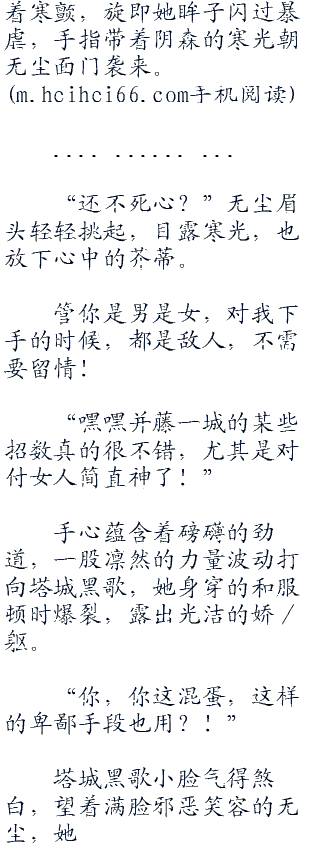 着寒颤，旋即她眸子闪过暴
虐，手指带着阴森的寒光朝
无尘面门袭来。
(m.hcihci66.com手机阅读)
.... ...... ...
“还不死心？”无尘眉
头轻轻挑起，目露寒光，也
放下心中的芥蒂。
管你是男是女，对我下
手的时候，都是敌人，不需
要留情！
“嘿嘿并藤一城的某些
招数真的很不错，尤其是对
付女人简直神了！”
手心蕴含着磅礴的劲
道，一股凛然的力量波动打
向塔城黑歌，她身穿的和服
顿时爆裂，露出光洁的娇／
躯。
“你，你这混蛋，这样
的卑鄙手段也用？！”
塔城黑歌小脸气得煞
白，望着满脸邪恶笑容的无
尘，她